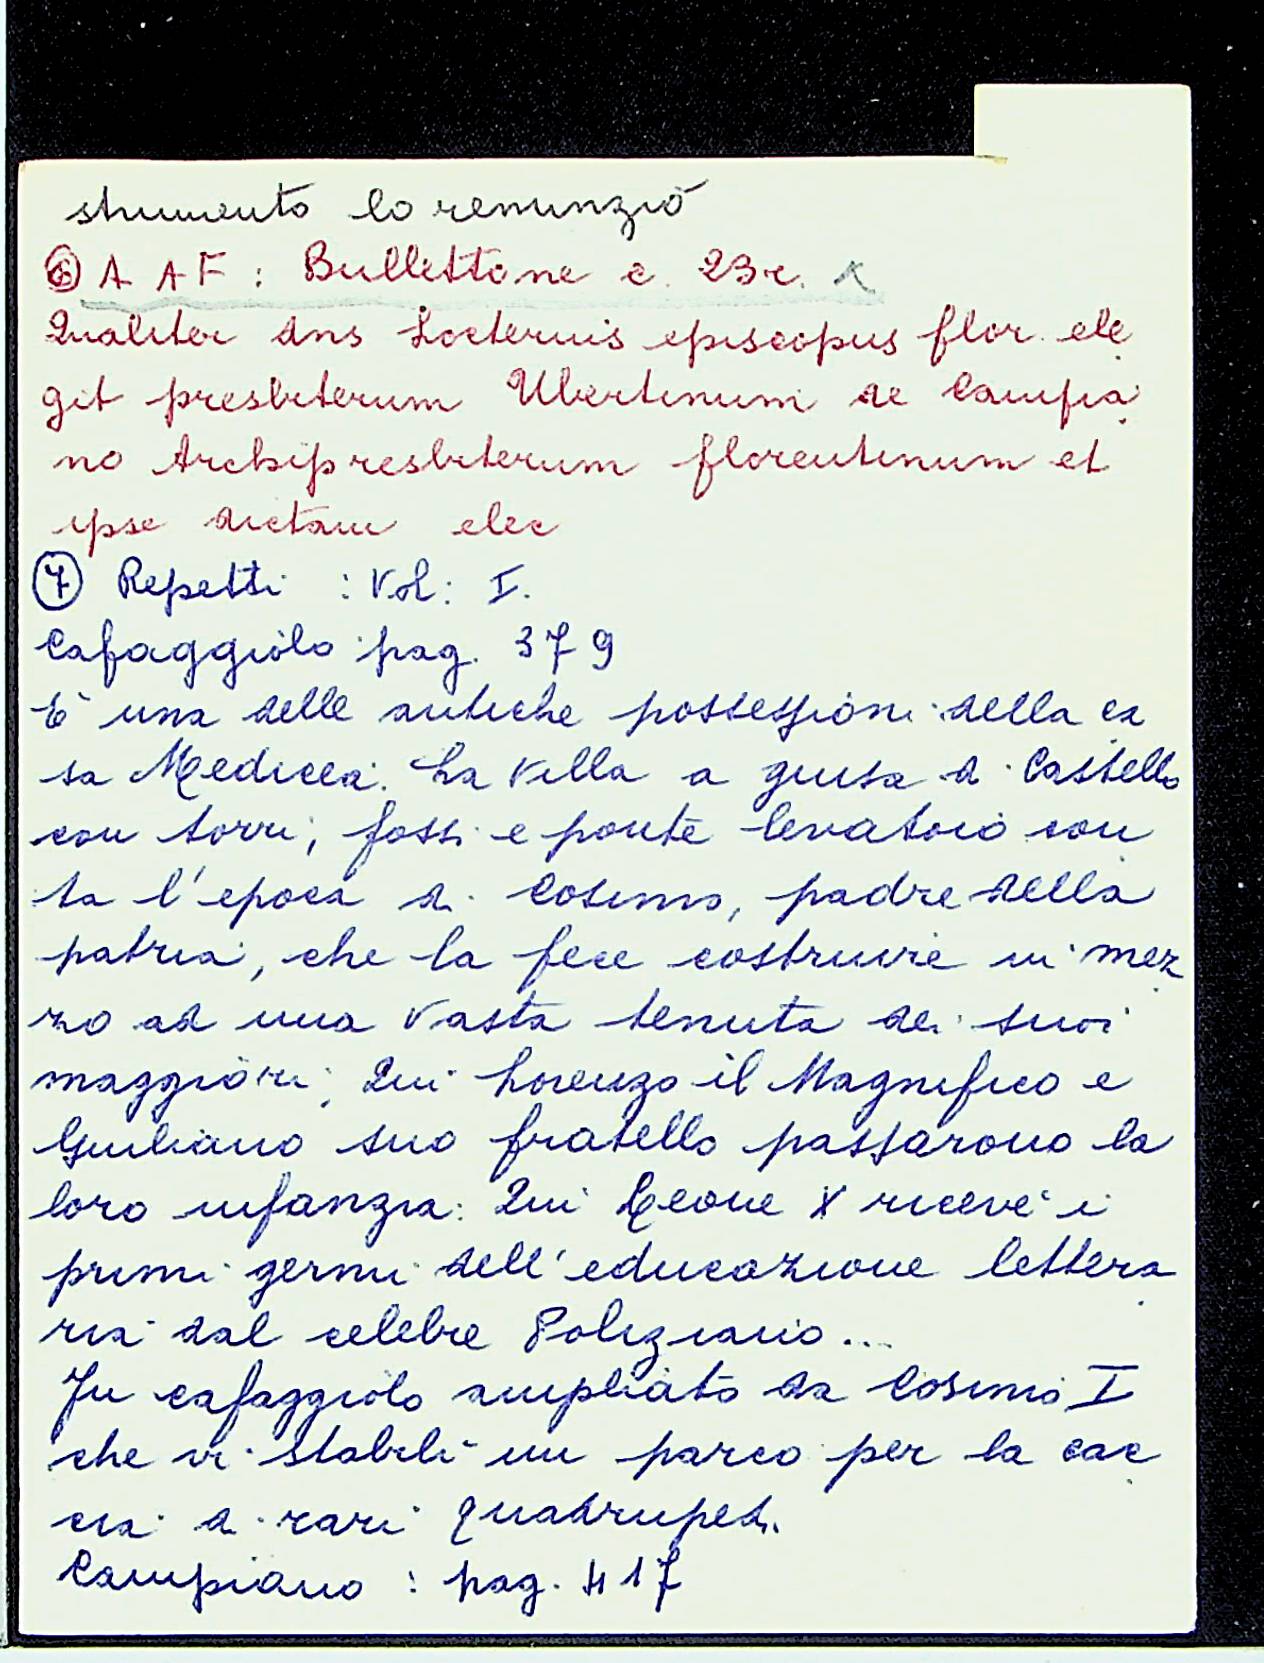 strumento lo renunziò
⑥ A A F : Bullettone c. 23r.
Qualiter dns Locterius episcopus flor. ele
git presbiterum Ubertinum de Campia
no Archipresbiterum florentinum et
ipse dictam elec
⑦ Repetti : Vol: I.
Cafaggiolo pag. 379
È una delle antiche possessioni della ca
sa Medicea. La Villa a guisa di Castello
con torri, fossi e ponte levatoio con
ta l'epoca di Cosimo, padre della
patria, che la fece costruire in mez
zo ad una vasta tenuta dei suoi
maggiori; Qui Lorenzo il Magnifico e
Giuliano suo fratello passarono la
loro infanzia: Qui Leone X ricevè i
primi germi dell'educazione lettera
ria dal celebre Poliziano...
Fu cafaggiolo ampliato da Cosimo I
che vi stabilì un parco per la cac
cia di rari quadrupedi.
Campiano : pag. 417